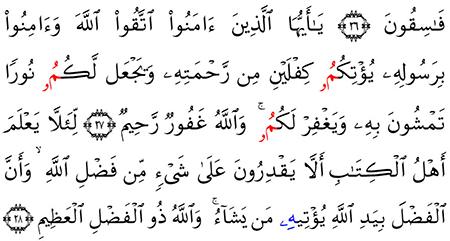 فَـٰسِقُونَ ﴿٢٦﴾ يَـٰٓأَيُّهَا ٱلَّذِينَ ءَامَنُوا۟ ٱتَّقُوا۟ ٱللَّهَ وَءَامِنُوا۟
بِرَسُولِهِۦ يُؤْتِكُمُۥ كِفْلَيْنِ مِن رَّحْمَتِهِۦ وَيَجْعَل لَّكُمُۥ نُورًا
تَمْشُونَ بِهِۦ وَيَغْفِرْ لَكُمُۥ ۚ وَٱللَّهُ غَفُورٌ رَّحِيمٌ ﴿٢٧﴾ لِّئَلَّا يَعْلَمَ
أَهْلُ ٱلْكِتَـٰبِ أَلَّا يَقْدِرُونَ عَلَىٰ شَىْءٍ مِّن فَضْلِ ٱللَّهِ ۙ وَأَنَّ
ٱلْفَضْلَ بِيَدِ ٱللَّهِ يُؤْتِيهِۦ مَن يَشَآءُ ۚ وَٱللَّهُ ذُو ٱلْفَضْلِ ٱلْعَظِيمِ ﴿٢٨﴾